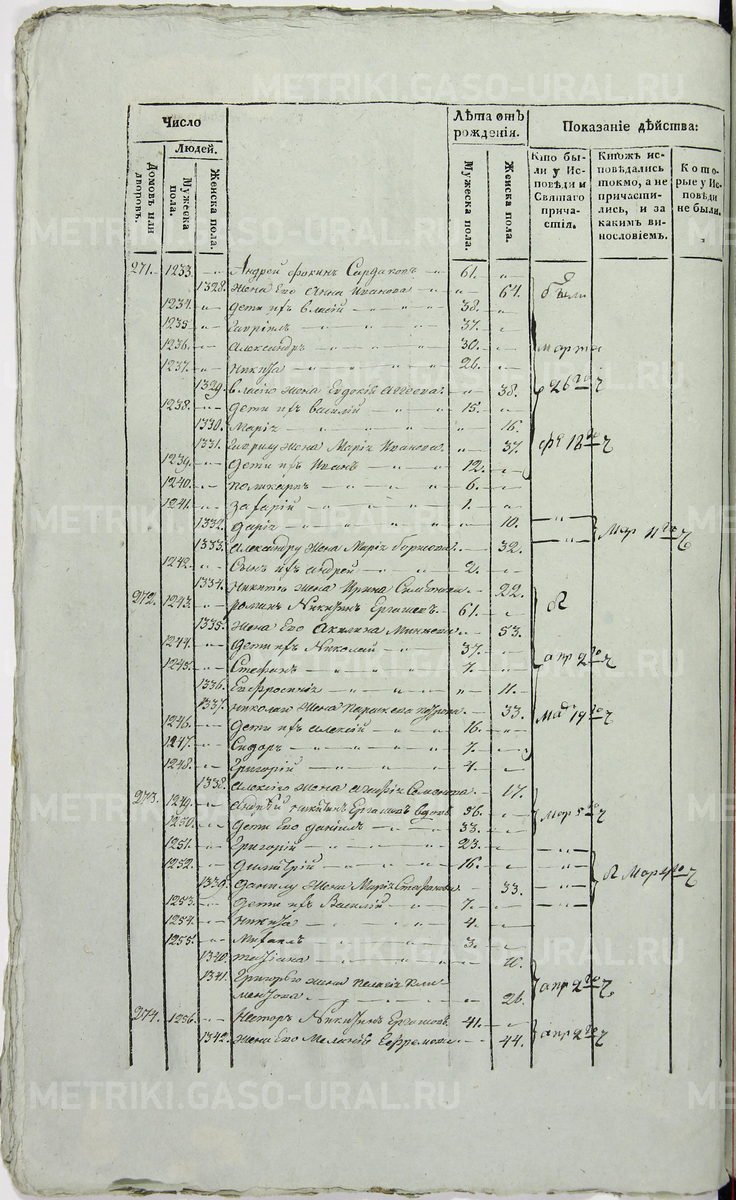 METRIKI.GASO-URAL.RU
Число
Людей.
Домовъ или дворовъ.
Мужеска пола.
Женска пола.
Лѣта отъ рожденія.
Мужеска пола.
Женска пола.
Показаніе дѣйства:
Кто были у Исповѣди и Святаго причастія.
Ктожъ исповѣдались токмо, а не причастились, и за какимъ винословіемъ.
Которые у Исповѣди не были.
271. 1233. Андрей Фокинъ 61.
1328. жена Его Анна Иванова 64. были
1234. дети ихъ власій 38.
1235 гаврилъ 37.
1236. александръ 30. марта
1237. никита 26.
1329. власію жена Евдокія 38. 26го
1238. дети ихъ василій 15.
1330. Марія 16.
1331. гаврилу жена Марія Иванова 37. 18го
1239. дети ихъ Иванъ 12.
1240. поликарпъ 6.
1241. захарій 1.
1332. дарія 10.
1333. александру жена Марія борисова 32. Мар 11го
1242. сынъ ихъ андрей 2.
1334. никите жена Ирина 22.
272. 1243. романъ Никитинъ 61.
1335. жена Его Акилина 53.
1244. дети ихъ Николай 37.
1245. Стефанъ 7. апр 2го
1336. Евфросинія 11.
1337. николаю жена параскева петрова 33. Мар 19го
1246. дети ихъ алексій 16.
1247. Сидоръ 7.
1248. григорій 4.
1338. алексію жена агафія 17.
273. 1249. андрѣй никитинъ вдовъ 56. мар 5го
1250. дети Его данилъ 33.
1251. григорій 23.
1252. димитрій 16.
1339. данилу жена Марія Стефанова 33. Мар 4го
1253. дети ихъ Василій 7.
1254. никита 4.
1255. Михаилъ 3.
1340. татіана
1341. григорью жена пелагія Кли-
ментова 26. апр 2го
274. 1256. Несторъ Никитинъ 41.
1342. жена Его Меланія Ефремова 44. апр 2го